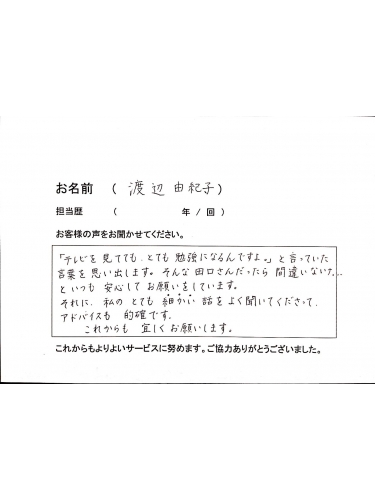 お名前 ( 渡辺 由紀子 )
担当歴 ( 年 / 回 )
お客様の声をお聞かせてください。
「テレビを見てても、とても勉強になるんですよ。」と言っていた
言葉を思い出します。そんな田口さんだったら間違いない?…
といつも安心してお願いをしています。
それに、私のとても細かい話をよく聞いてくださって、
アドバイスも的確です。
これからも宜しくお願いします。
これからもよりよいサービスに努めます。ご協力ありがとうございました。